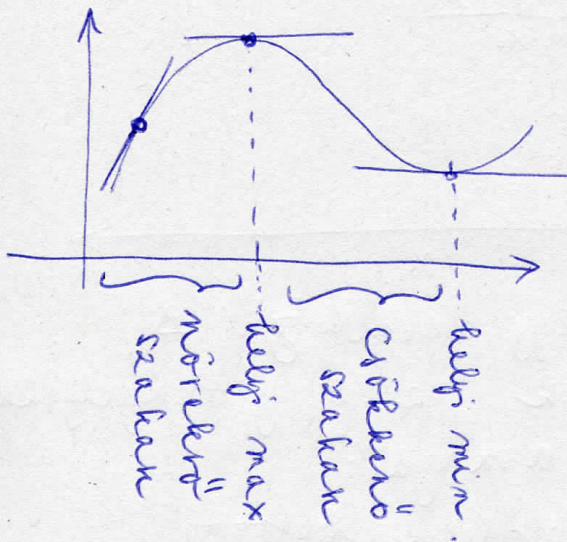 növekvő
szakasz
helyi max
csökkenő
szakasz
helyi min.